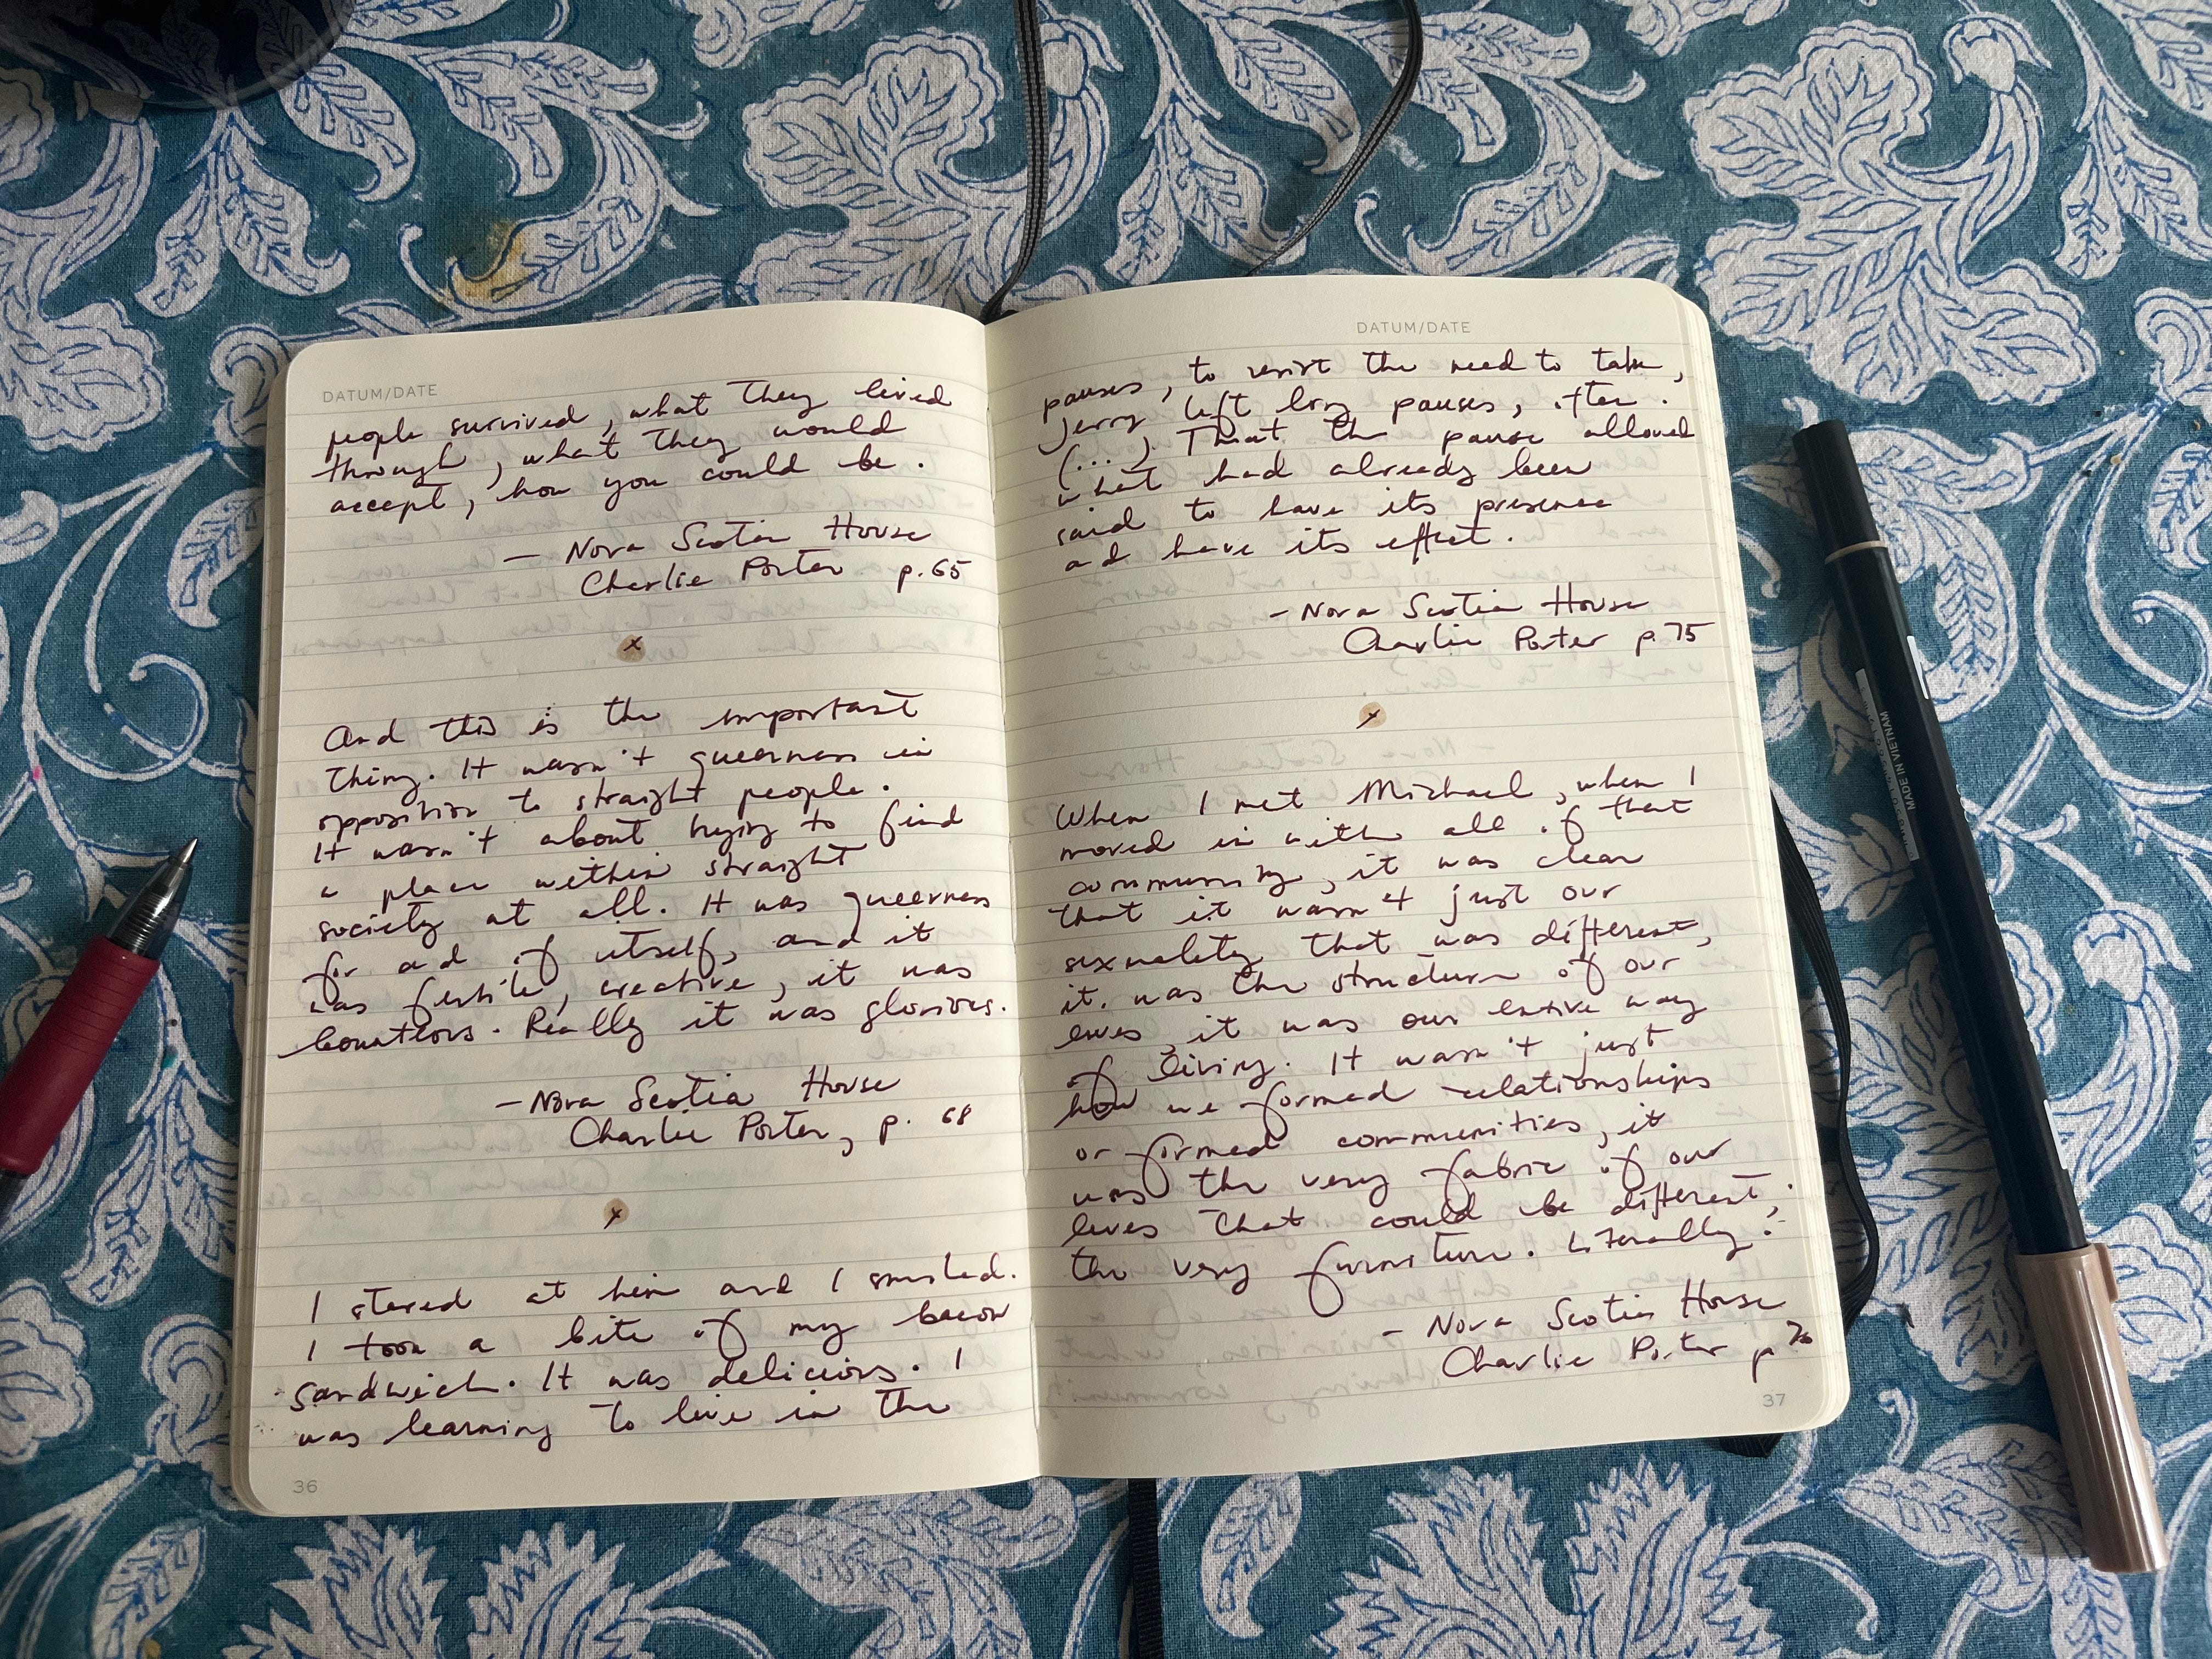 DATUM/DATE
people survived, what they lived
through, what they would
accept, how you could be.
— Nova Scotia House
Charlie Porter p. 65
x
And this is the important
thing. It wasn't queerness in
opposition to straight people.
It wasn't about trying to find
a place within straight
society at all. It was queerness
for and of itself, and it
was fertile, creative, it was
bounteous. Really it was glorious.
— Nova Scotia House
Charlie Porter, p. 68
x
I stared at him and I smiled.
I took a bite of my bacon
sandwich. It was delicious. I
was learning to live in the
36
DATUM/DATE
pauses, to resist the need to talk,
Jerry left long pauses, often.
(...) That the pause allowed
what had already been
said to have its presence
and have its effect.
— Nova Scotia House
Charlie Porter p. 75
x
When I met Michael, when I
moved in with all of that
community, it was clear
that it wasn't just our
sexuality that was different,
it was the structure of our
lives, it was our entire way
of living. It wasn't just
how we formed relationships
or formed communities, it
was the very fabric of our
lives that could be different,
the very furniture. Literally.
— Nova Scotia House
Charlie Porter p
37
MADE IN VIETNAM